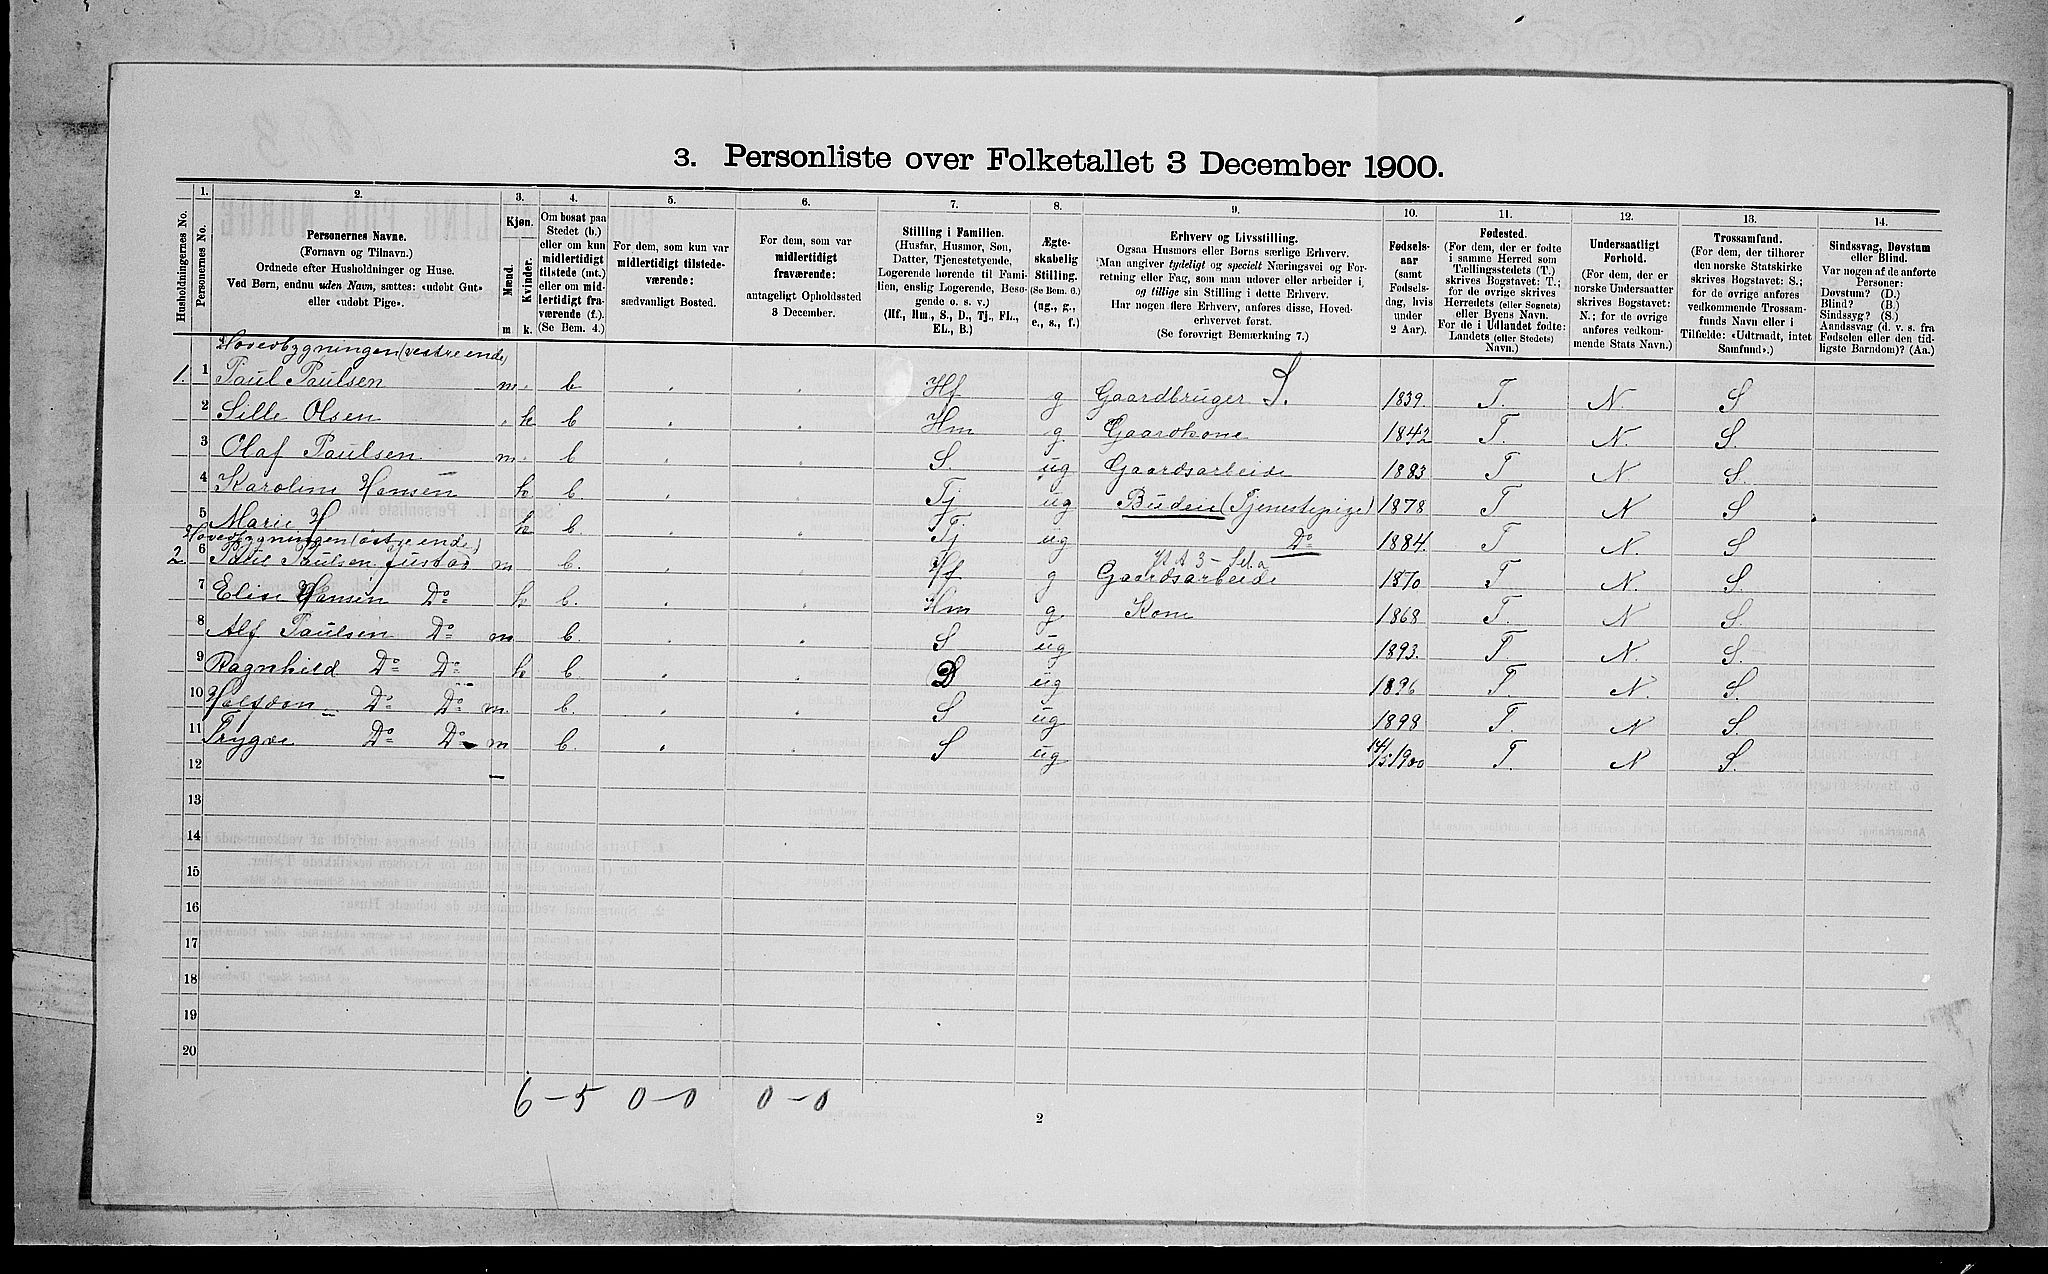 3. Personliste over Folketallet 3 December 1900.
Husholdningernes No.
1. Personernes No.
2. Personernes Navne.
(Fornavn og Tilnavn.)
Ordnede efter Husholdninger og Huse.
Ved Børn, endnu uden Navn, sættes: «udøbt Gut»
eller «udøbt Pige».
3. Kjøn.
Mænd. m
Kvinder. k.
4. Om bosat paa
Stedet (b.)
eller om kun
midlertidigt
tilstede (mt.)
eller om mid-
lertidigt fra-
værende (f.).
(Se Bem. 4.)
5. For dem, som kun var
midlertidigt tilstede-
værende:
sædvanligt Bosted.
6. For dem, som var
midlertidigt
fraværende:
antageligt Opholdssted
3 December.
7. Stilling i Familien.
(Husfar, Husmor, Søn,
Datter, Tjenestetyende,
Logerende hørende til Fami-
lien, enslig Logerende, Besø-
gende o. s. v.)
(Hf., Hm., S., D., Tj., FL.,
EL., B.)
8. Ægte-
skabelig
Stilling.
(Se Bem. 6.)
(ug., g.,
e., s., f.)
9. Erhverv og Livsstilling.
Ogsaa Husmors eller Børns særlige Erhverv.
Man angiver tydeligt og specielt Næringsvei og For-
retning eller Fag, som man udøver eller arbeider i,
og tillige sin Stilling i dette Erhverv.
Har nogen flere Erhverv, anføres disse, Hoved-
erhvervet først.
(Se forøvrigt Bemærkning 7.)
10. Fødsels-
aar
(samt
Fødsels-
dag, hvis
under
2 Aar).
11. Fødested.
(For dem, der er fødte
i samme Herred som
Tællingsstedets (T.)
skrives Bogstavet: T.;
for de øvrige skrives
Herredets (eller Sognets)
eller Byens Navn.
For de i Udlandet fødte:
Landets (eller Stedets)
Navn.)
12. Undersaatligt
Forhold.
(For dem, der er
norske Undersaatter
skrives Bogstavet:
N.; for de øvrige
anføres vedkom-
mende Stats Navn.)
13. Trossamfund.
(For dem, der tilhører
den norske Statskirke
skrives Bogstavet: S.;
for de øvrige anføres
vedkommende Trossam-
funds Navn eller i
Tilfælde: «Udtraadt, intet
Samfund».)
14. Sindssvag, Døvstum
eller Blind.
Var nogen af de anførte
Personer:
Døvstum? (D.)
Blind? (B.)
Sindssyg? (S.)
Aandssvag (d. v. s. fra
Fødselen eller den tid-
ligste Barndom)? (Aa.)
Hovedbygningen (vestre ende)
1. 1 Paul Paulsen m. b Hf g Gaardbruger S. 1839. T. N. S
2 Sille Olsen k b Hm g. Gaardkone 1842 T. N. S.
3 Olaf Paulsen m. b S. ug Gaardsarbeide 1883 T N S.
4 Karoline Hansen k b. Tj ug Budeie (Tjenestepige) 1878 T N S
5 Marie H k b. Tj ug Do 1884. T N. S
Hovedbygningen (østre ende)
2. 6 Paul Paulsen m b. Hf g Gaardsarbeide 1870 T N. S.
7 Elise Hansen Do k b. Hm g. Kone 1868 T. N S.
8 Alf Paulsen Do m b. S ug 1893. T. N. S.
9 Ragnhild Do Do k b. D ug 1896 T. N. S.
10 Halfdan Do Do m. b. S ug 1898 T. N S.
11 Trygve Do Do m b. S ug 14/5 1900 T. N S.
12
13
14
15
16
17
18
19
20
6-5 0-0 0-0
2